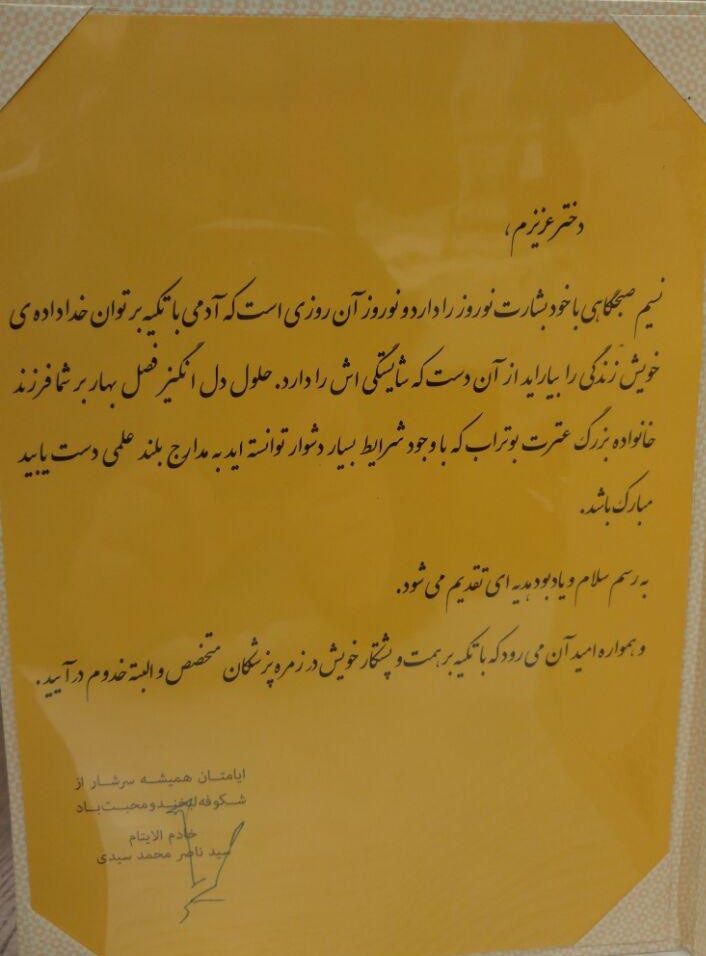 دختر عزیزم،
نسیم صبحگاهی با خود بشارت نوروز را دارد و نوروز آن روزی است که آدمی با تکیه بر توان خداداده ی
خویش زندگی را بیاراید از آن دست که شایستگی اش را دارد. حلول دل انگیز فصل بهار بر شما فرزند
خانواده بزرگ عترت بوتراب که با وجود شرایط بسیار دشوار توانسته اید به مدارج بلند علمی دست یابید
مبارک باشد.
به رسم سلام و یادبود هدیه ای تقدیم می شود.
و همواره امید آن می رود که با تکیه بر همت و پشتکار خویش در زمره پزشکان متخصص و البته خدوم درآیید.
ایامتان همیشه سرشار از
شکوفه لبخند و محبت باد
خادم الایتام
سید ناصر محمد سیدی